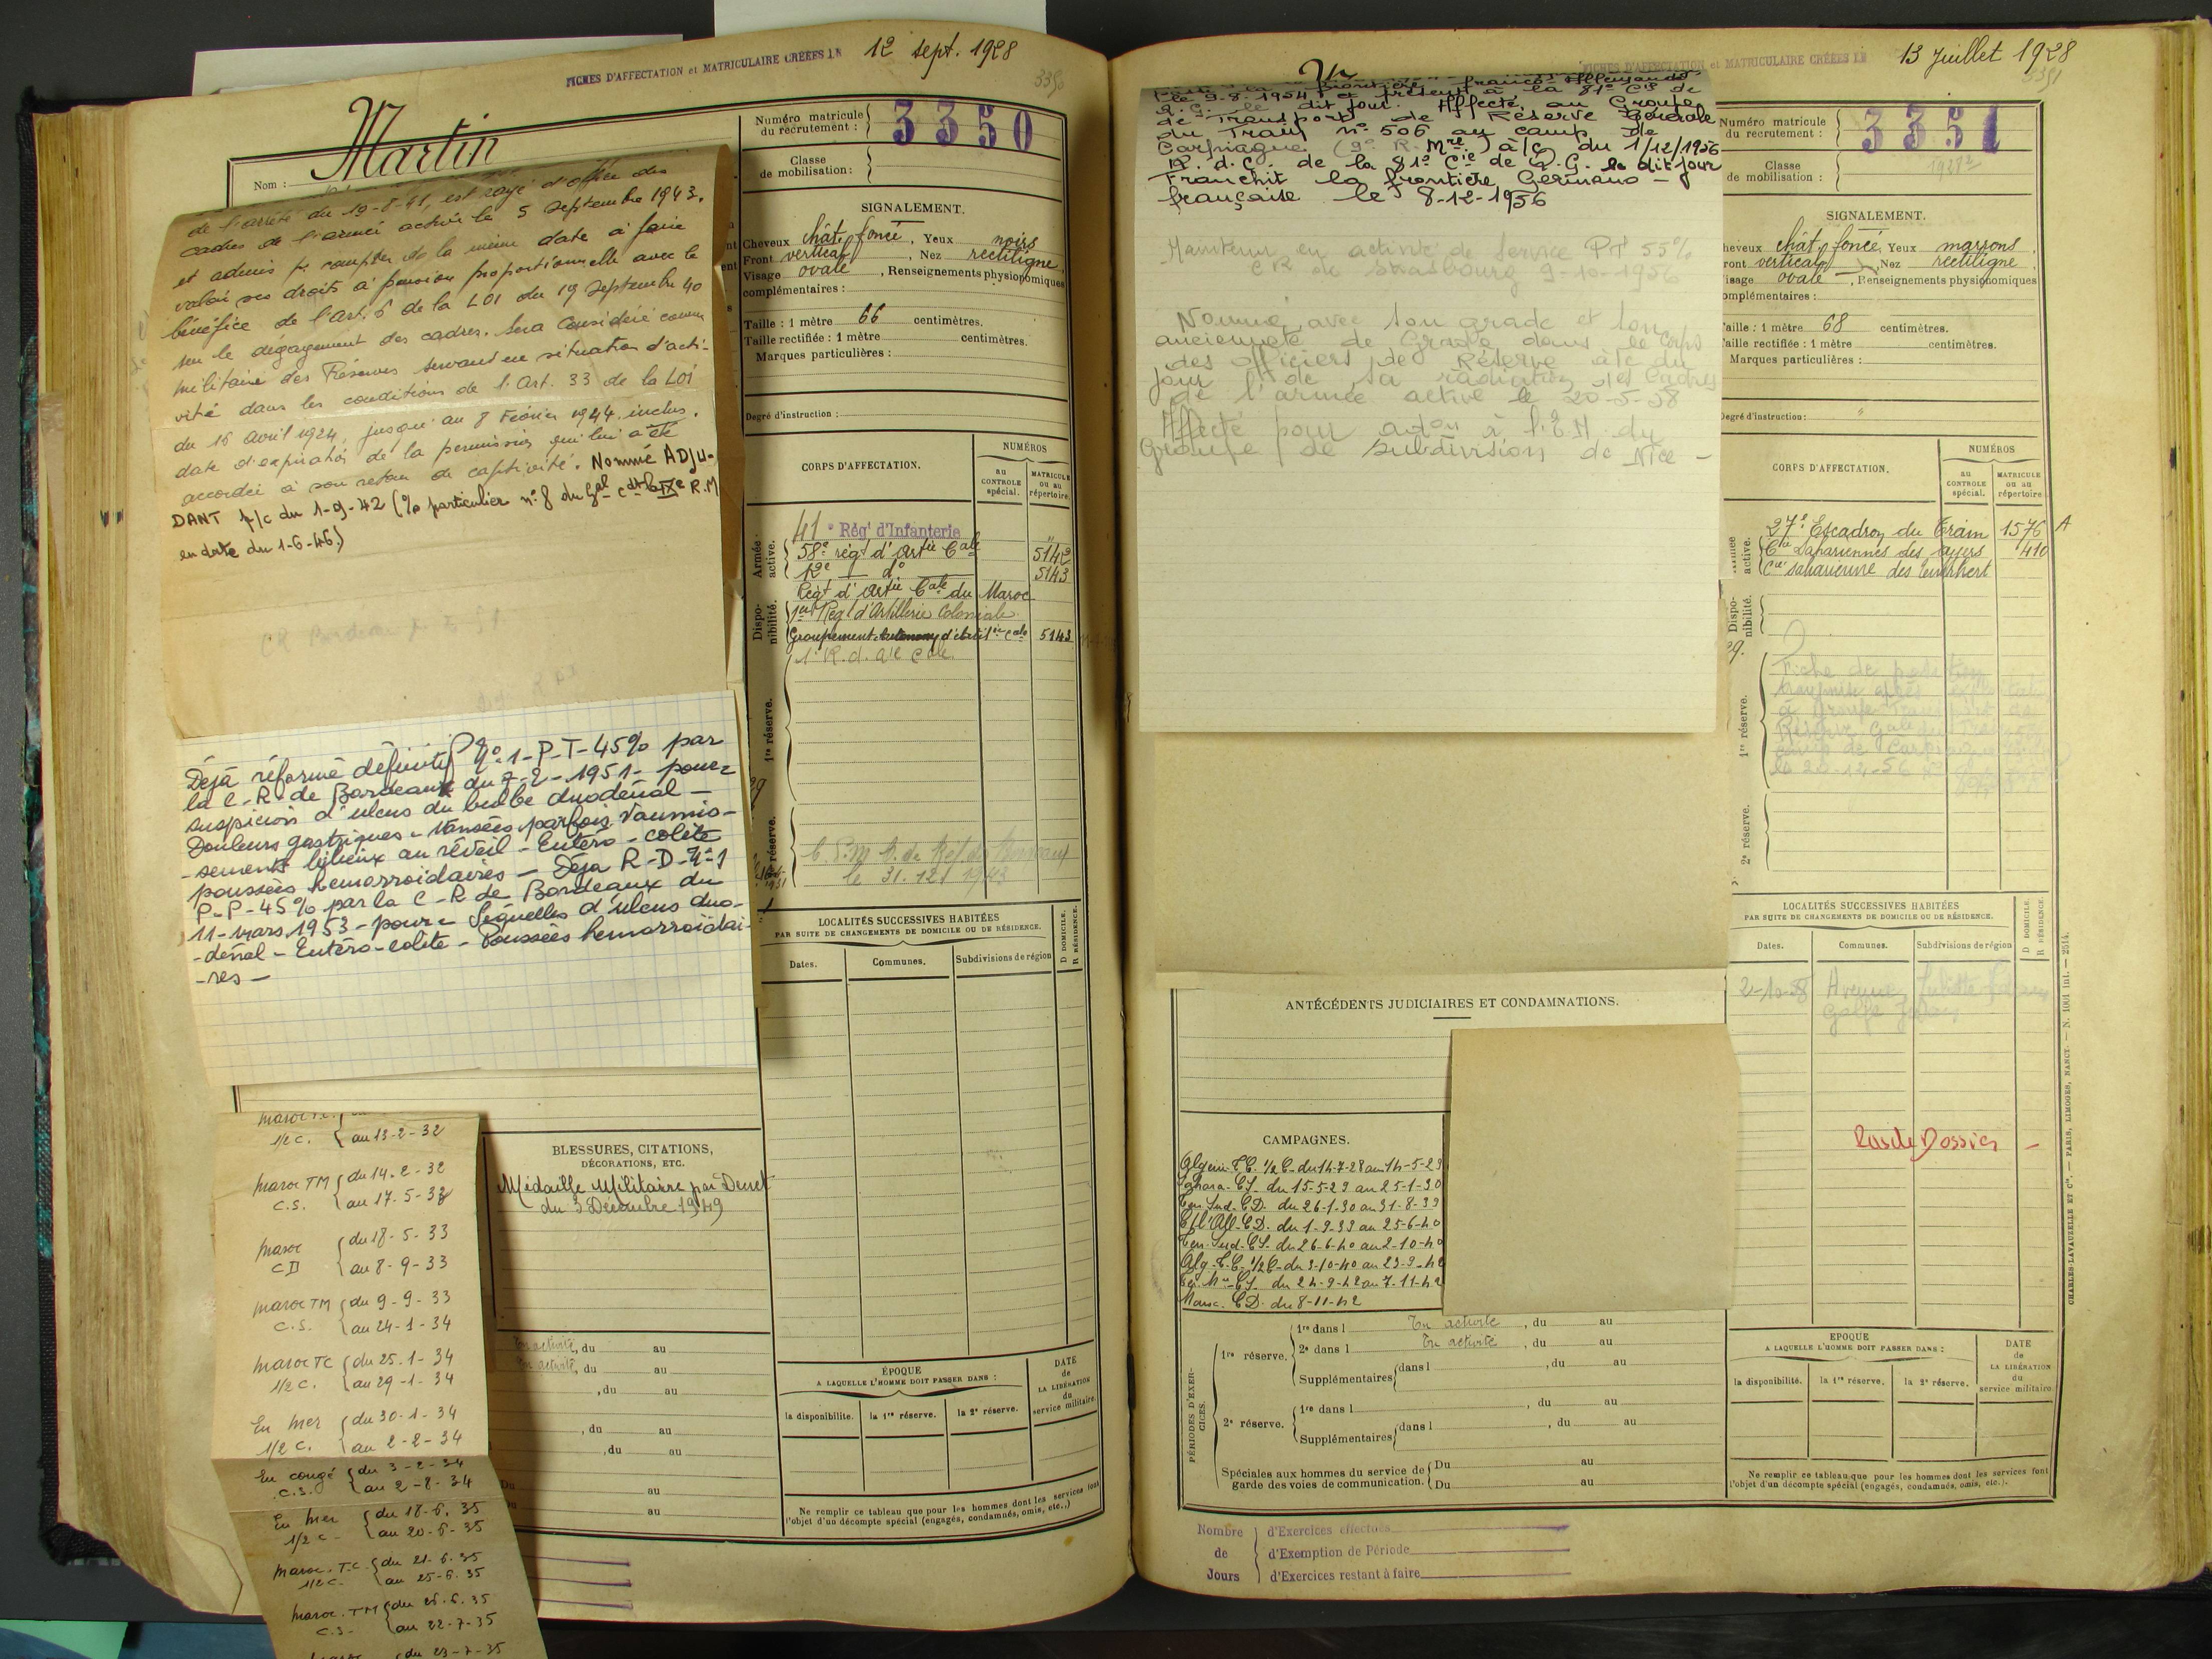 FICHES D'AFFECTATION et MATRICULAIRE CRÉÉES LE 12 sept. 1928
3350
Nom : Martin
Numéro matricule
du recrutement : 3350
Classe
de mobilisation :
de l'arrêté du 19-8-41, est rayé d'office des
cadres de l'armée active le 5 septembre 1943.
et admis p. compter de la même date à faire
valoir ses droits à pension proportionnelle avec le
bénéfice de l'art. 6 de la LOI du 19 septembre 40
sur le dégagement des cadres. Sera considéré comme
militaire des Réserves servant en situation d'acti-
vité dans les conditions de l'Art. 33 de la LOI
du 16 avril 1924, jusqu'au 8 Février 1944 inclus.
date d'expiration de la permission qui lui a été
accordée à son retour de captivité. Nommé ADJU-
DANT p/c du 1-9-42 (% particulier n° 8 du Gal Cdt la IXe R.M
en date du 1-6-46)
Déjà réformé définitif N°-1-P-T-45% par
la C-R- de Bordeaux du 7-2-1951- pour=
suspicion d'ulcus du bulbe duodénal -
Douleurs gastriques - Nausées parfois Vaumis-
-sements bilieux au réveil - Entéro-colite
poussées hemorroidaires - Déja R-D-N°-1
P-P-45% par la C-R de Bordeaux du
11-Mars 1953 - pour= Séquelles d'ulcus duo-
-dénal - Entéro-colite - Poussées hemorroïdai-
-res -
SIGNALEMENT.
Cheveux chât. foncé, Yeux noirs
Front vertical, Nez rectiligne,
Visage ovale, Renseignements physionomiques
complémentaires :
Taille : 1 mètre 66 centimètres.
Taille rectifiée : 1 mètre centimètres.
Marques particulières :
Degré d'instruction :
CORPS D'AFFECTATION.
NUMÉROS
au
CONTROLE
spécial.
MATRICULE
ou au
répertoire.
Armée active.
41e Régt d'Infanterie "
58e régt d'Artie Cale 5142
12e d° 5143
Régt d'Artie Cale du Maroc
Disponibilité.
1er Régt d'Artillerie Coloniale
Groupement Autonome d'Artillie Cale 5143
1e R. d'Aie Cale.
1re réserve.
2e réserve.
le 31.12 1943
LOCALITÉS SUCCESSIVES HABITÉES
PAR SUITE DE CHANGEMENTS DE DOMICILE OU DE RÉSIDENCE.
D DOMICILE.
R RÉSIDENCE.
Dates. Communes. Subdivisions de région
Maroc T.C.
1/2 C. au 13-2-32
Maroc TM du 14-2-32
C.S. au 17-5-33
Maroc du 18-5-33
CD au 8-9-33
Maroc TM du 9-9-33
C.S. au 24-1-34
Maroc TC du 25-1-34
1/2 C. au 29-1-34
En mer du 30-1-34
1/2 C. au 2-2-34
En congé du 3-2-34
C.S. au 2-8-34
En mer du 18-6-35
1/2 C- au 20-6-35
Maroc. T.C. du 21-6-35
1/2 C- au 25-6-35
Maroc. TM du 26-6-35
C.S- au 22-7-35
du 23-7-35
BLESSURES, CITATIONS,
DÉCORATIONS, ETC.
Médaille Militaire par Decret
du 3 Décembre 1949
En activité, du au
En activité, du au
, du au
, du au
, du au
Du au
au
ÉPOQUE
A LAQUELLE L'HOMME DOIT PASSER DANS :
DATE
de
LA LIBÉRATION
du
service militaire.
la disponibilité. la 1re réserve. la 2e réserve.
Ne remplir ce tableau que pour les hommes dont les services font
l'objet d'un décompte spécial (engagés, condamnés, omis, etc.,)
FICHES D'AFFECTATION et MATRICULAIRE CRÉÉES LE 13 Juillet 1928
3351
Numéro matricule
du recrutement : 3351
Classe
de mobilisation : 1928²
la frontière franco-Allemande
le 9-8-1954 et présent à la 81e Cie de
Q.G. le dit jour. Affecté au Groupe
de Transport de Réserve Générale
du Train n° 506 au camp de
Carpiagne (9e R. Mre) à/c du 1/12/1956
R.d.C. de la 81e Cie de Q.G. le dit jour
Franchit la frontière Germano-
française le 8-12-1956
Maintenu en activité de Service PT 55%
CR de Strasbourg 9-10-1956
Nommé avec son grade et son
ancienneté de Grade dans le Corps
des officiers de Réserve à/c du
jour de sa radiation des Cadres
de l'armée active le 20-5-58
Affecté pour à l'E.M. du
Groupe de Subdivision de Nice -
SIGNALEMENT.
Cheveux chât. foncé, Yeux marrons,
Front vertical, Nez rectiligne,
Visage ovale, Renseignements physionomiques
complémentaires :
Taille : 1 mètre 68 centimètres.
Taille rectifiée : 1 mètre centimètres.
Marques particulières :
Degré d'instruction : "
CORPS D'AFFECTATION.
NUMÉROS
au
CONTROLE
spécial.
MATRICULE
ou au
répertoire.
Armée active.
27e Escadron du Train 1576 A
Cie Sahariennes des Ajjers 410
Cie saharienne des
Disponibilité.
1re réserve.
Fiche de position
le 20-12-56
2e réserve.
LOCALITÉS SUCCESSIVES HABITÉES
PAR SUITE DE CHANGEMENTS DE DOMICILE OU DE RÉSIDENCE.
D DOMICILE.
R RÉSIDENCE.
Dates. Communes. Subdivisions de région
2-10-58 Avenue Juliette
Golfe Juan
Dossier -
ANTÉCÉDENTS JUDICIAIRES ET CONDAMNATIONS.
CAMPAGNES.
Algérie. T.C. 1/2 C. du 14-7-28 au 14-5-29
Sahara. CS. du 15-5-29 au 25-1-30
Ter. Sud. CD. du 26-1-30 au 31-8-39
C/l'All. CD. du 1-9-39 au 25-6-40
Ter. Sud. CS. du 26-6-40 au 2-10-40
Alg. T.C. 1/2 C. du 3-10-40 au 23-9-42
CS. du 24-9-42 au 7-11-42
Maroc. CD. du 8-11-42
PÉRIODES D'EXERCICES.
1re réserve.
1re dans l En activité, du au
2e dans l En activité, du au
Supplémentaires dans l , du au
2e réserve.
1re dans l , du au
Supplémentaires dans l , du au
Spéciales aux hommes du service de
garde des voies de communication.
Du au
Du au
EPOQUE
A LAQUELLE L'HOMME DOIT PASSER DANS :
DATE
de
LA LIBÉRATION
du
service militaire
la disponibilité. la 1re réserve. la 2e réserve.
Ne remplir ce tableau que pour les hommes dont les services font
l'objet d'un décompte spécial (engagés, condamnés, omis, etc.).
CHARLES-LAVAUZELLE ET Cie. — PARIS, LIMOGES, NANCY. — N. 1001 int. — 2514.
Nombre d'Exercices effectués
de d'Exemption de Période
Jours d'Exercices restant à faire